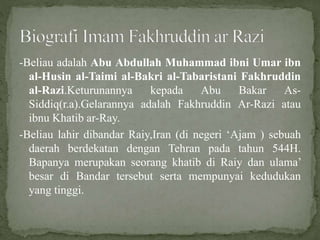 Biografi Imam Fakhruddin ar Razi
-Beliau adalah Abu Abdullah Muhammad ibni Umar ibn
al-Husin al-Taimi al-Bakri al-Tabaristani Fakhruddin
al-Razi.Keturunannya kepada Abu Bakar As-
Siddiq(r.a).Gelarannya adalah Fakhruddin Ar-Razi atau
ibnu Khatib ar-Ray.
-Beliau lahir dibandar Raiy,Iran (di negeri ‘Ajam ) sebuah
daerah berdekatan dengan Tehran pada tahun 544H.
Bapanya merupakan seorang khatib di Raiy dan ulama’
besar di Bandar tersebut serta mempunyai kedudukan
yang tinggi.